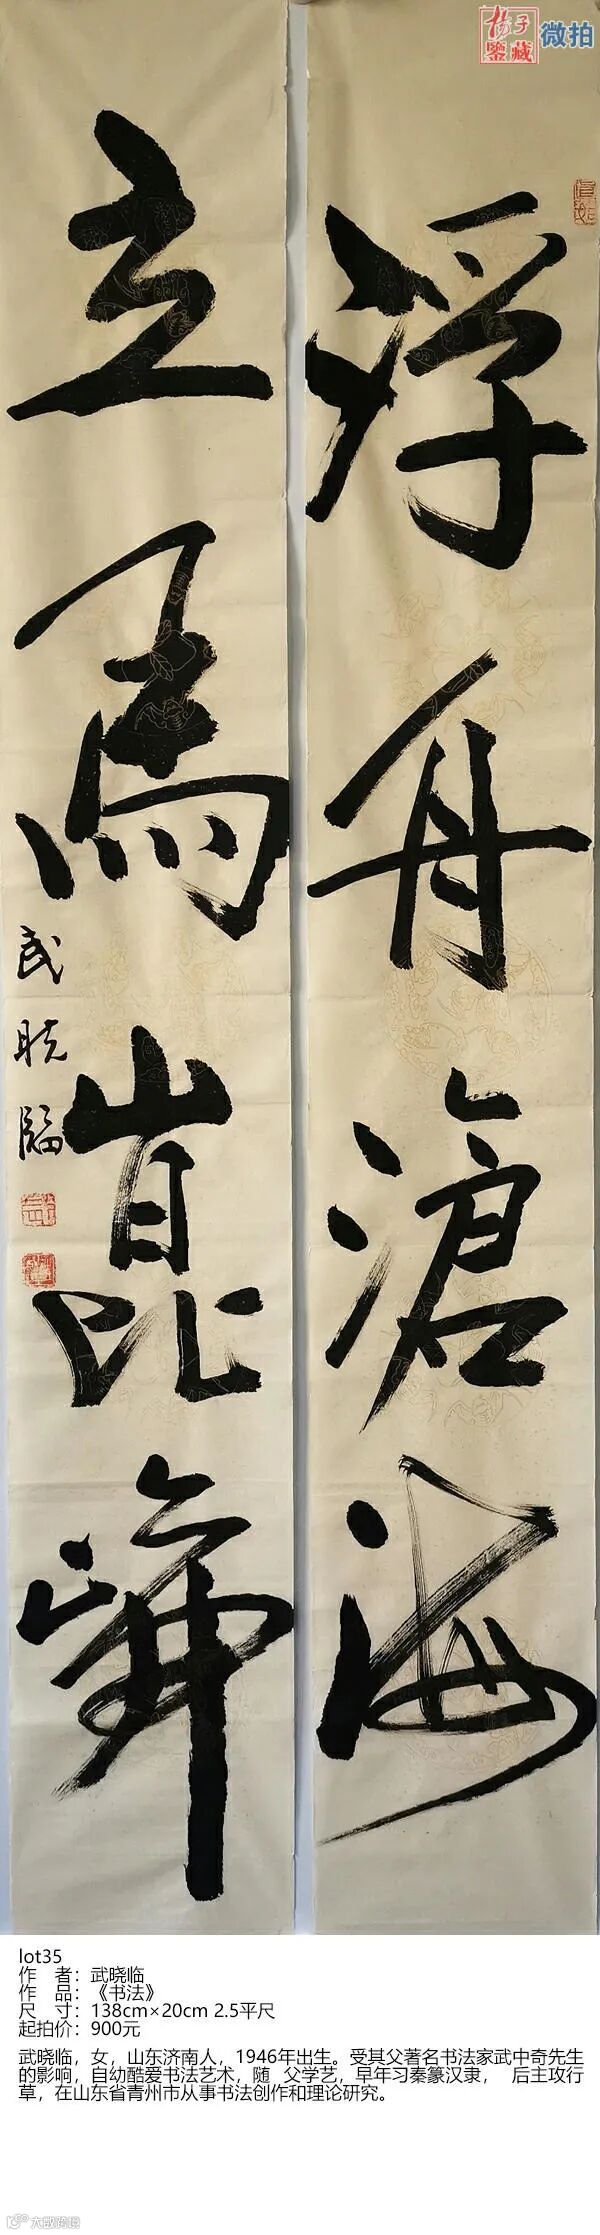 杨子
鉴藏
微拍
浮舟滄海
立馬崑崙
武晓临
lot35
作 者：武晓临
作 品：《书法》
尺 寸：138cm×20cm 2.5平尺
起拍价：900元
武晓临，女，山东济南人，1946年出生。受其父著名书法家武中奇先生
的影响，自幼酷爱书法艺术，随 父学艺，早年习秦篆汉隶， 后主攻行
草，在山东省青州市从事书法创作和理论研究。
大数跨境